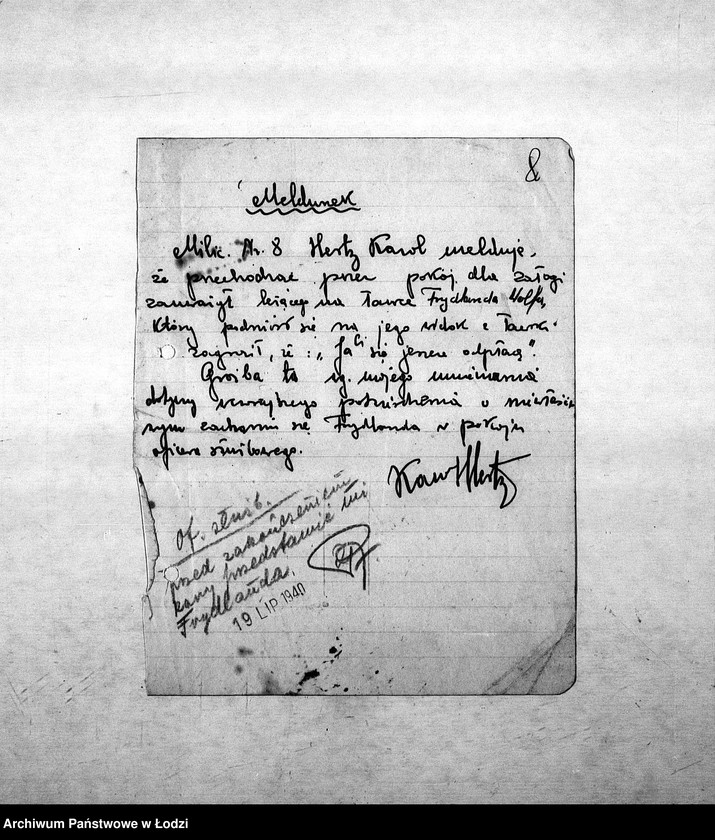 8
Meldunek
Milic. Nr. 8 Hertz Karol melduje,
że przechodząc przez pokój dla załogi
zauważył leżącego na ławce Frydlanda Wolfa,
który podniósł się na jego widok z ławki
zagroził, że: „Ja Ci się jeszcze odpłacę".
Groźba ta wg. mojego mniemania
dotyczy wczorajszego
zachowania się Frydlanda w pokoju
oficera służbowego.
Karol Hertz
Of. służb.
przed zakończeniem
kary przedstawić mi
Frydlanda.
19 LIP 1940
Archiwum Państwowe w Łodzi